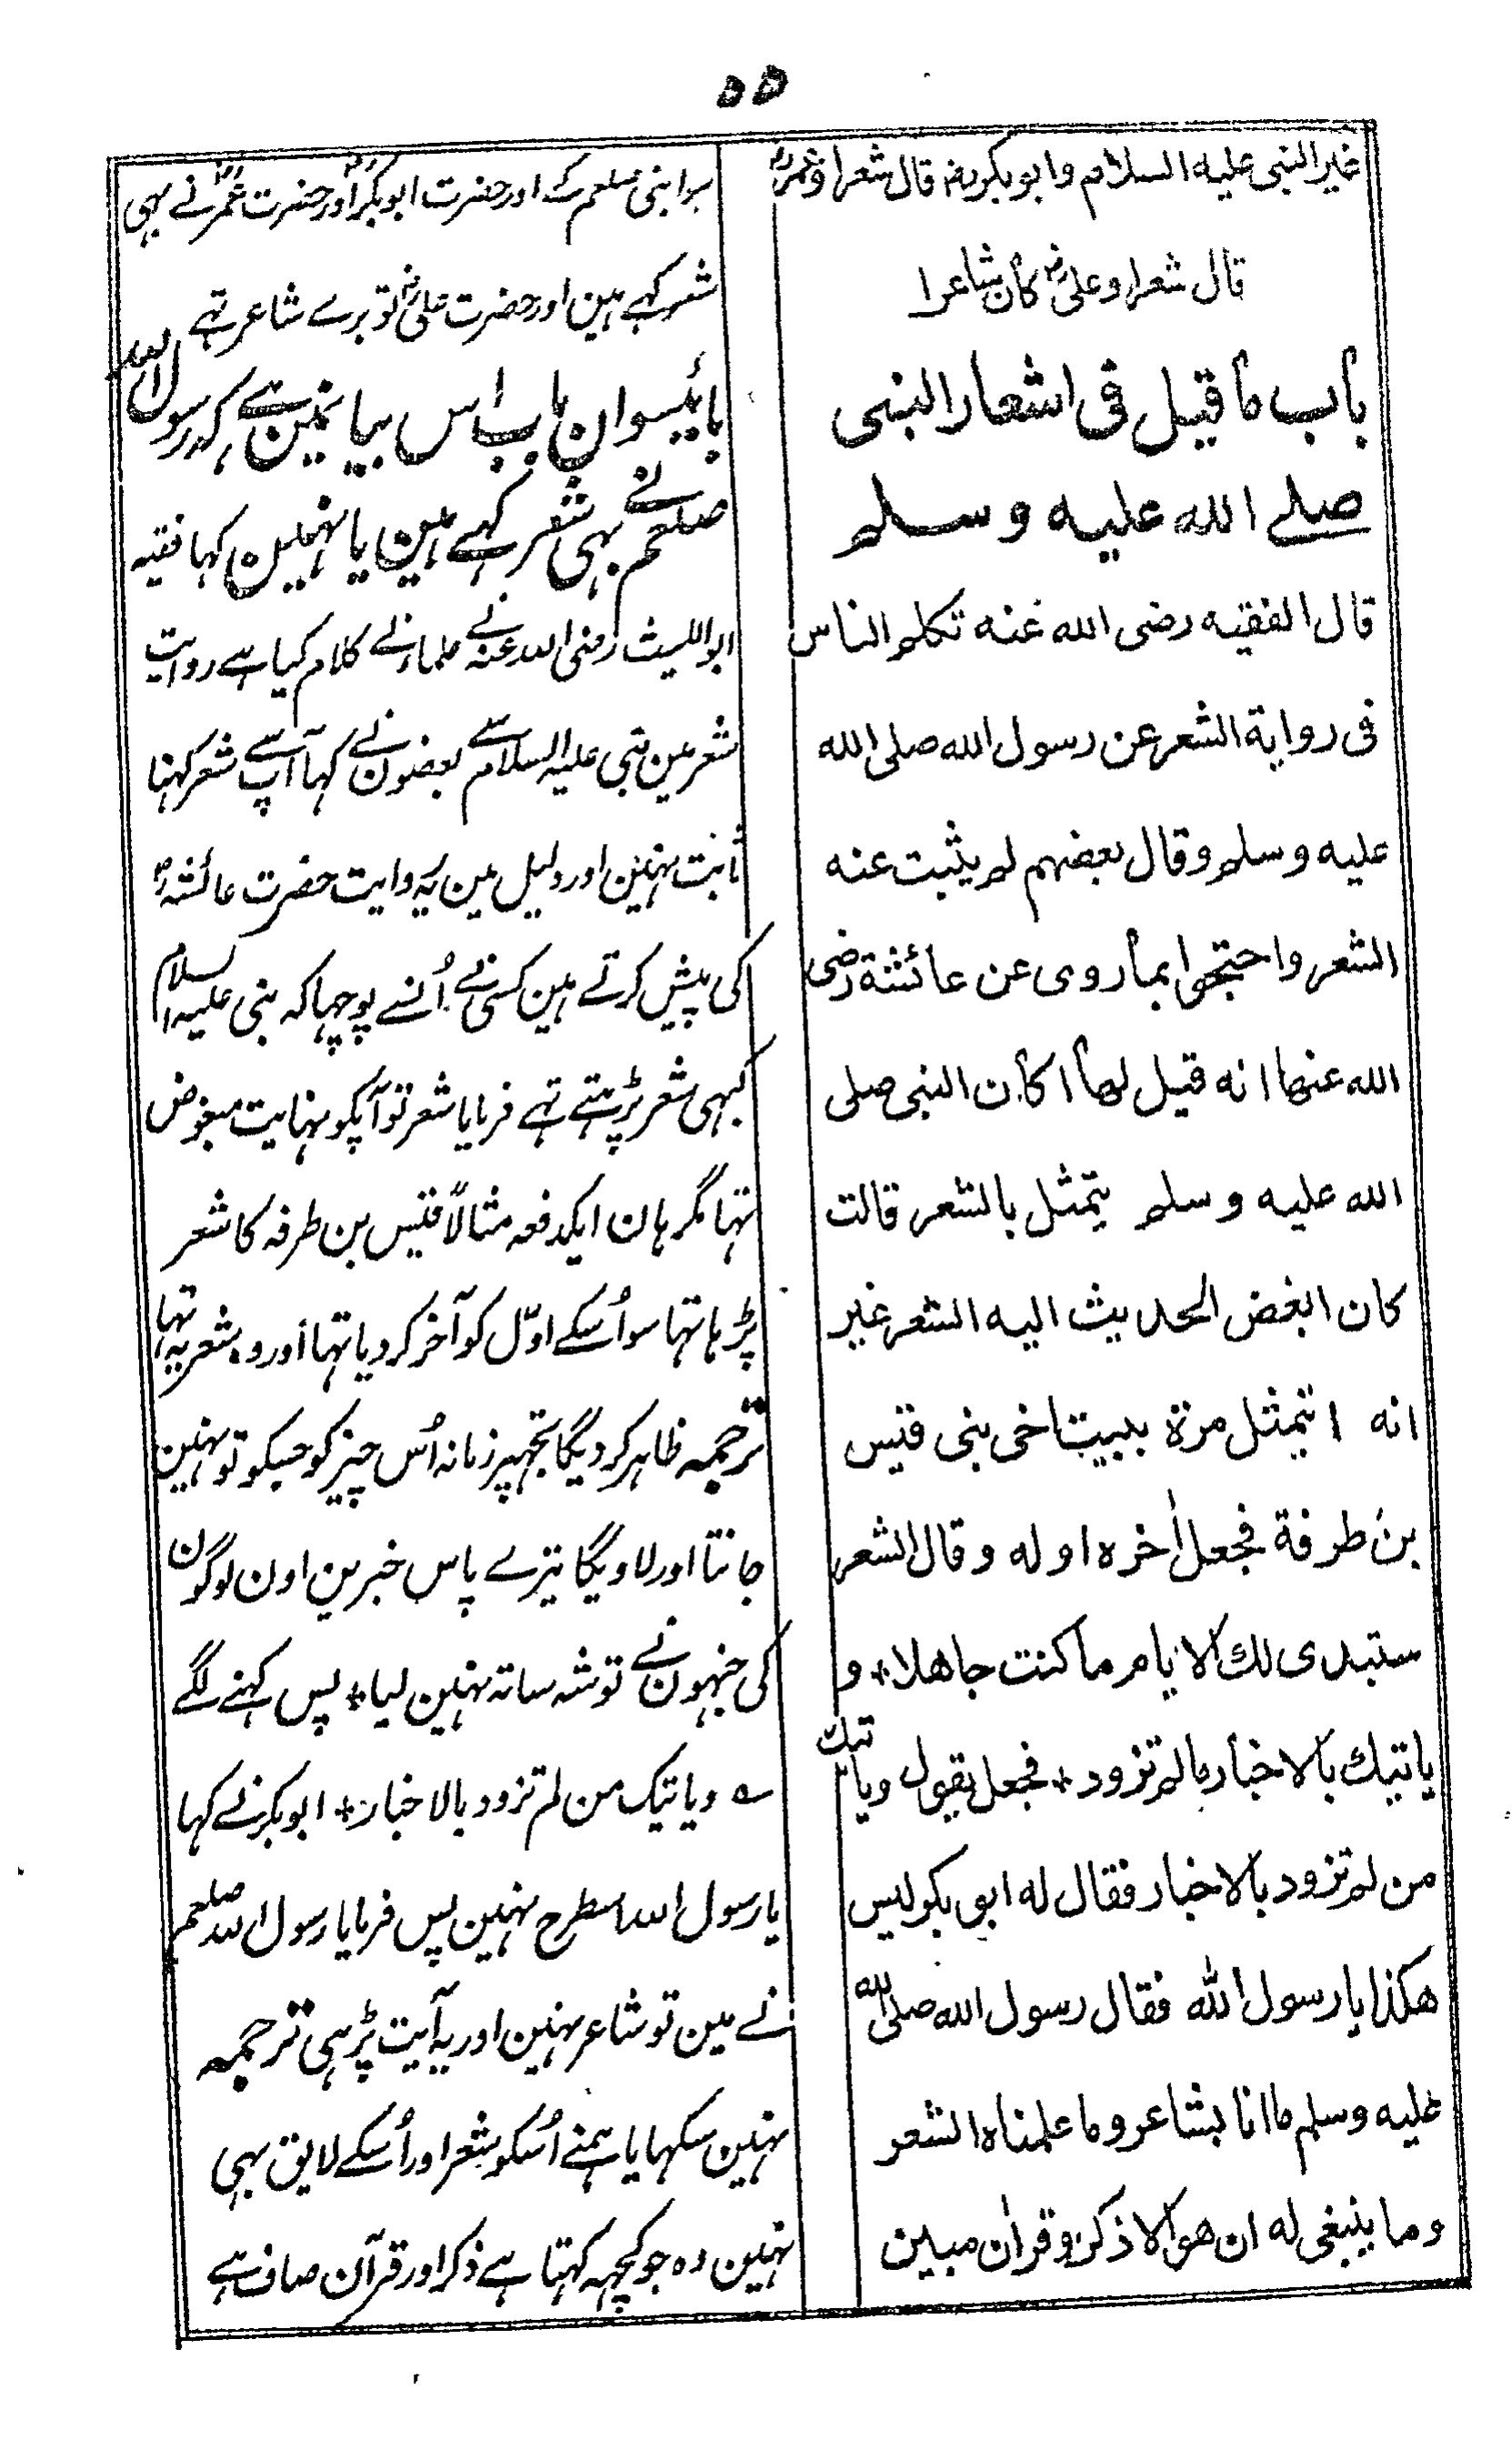 ۵۵
غیر النبی علیه السلام وابوبکر رض قال شعرا وعمر رض
قال شعرا وعلی رض کان شاعرا
باب ما قیل فی اشعار النبی
صلے الله علیه وسلم
قال الفقیه رضی الله عنه تکلم الناس
فی روایة الشعر عن رسول الله صلی الله
علیه وسلم وقال بعضهم لم یثبت عنه
الشعر واحتجوا بما روی عن عائشة رضی
الله عنها انه قیل لها اکان النبی صلی
الله علیه وسلم یتمثل بالشعر قالت
کان ابغض الحدیث الیه الشعر غیر
انه اتیمثل مرة ببیت اخی بنی قیس
بن طرفة فجعل اٰخره اوله وقال الشعر
ستبدی لك الایام ما کنت جاهلا + و
یاتیك بالاخبار مالم تزود + فجعل یقول ویاتیك
من لم تزود بالاخبار فقال له ابو بکر لیس
هکذا یا رسول الله فقال رسول الله صلی الله
علیه وسلم ما انا بشاعر وما علمناه الشعر
وما ینبغی له ان هو الا ذکر وقراٰن مبین
سوا نبی صلعم کے اور حضرت ابوبکرؓ اور حضرت عمرؓ نے بہی
شعر کہے ہین اور حضرت علیؓ تو بڑے شاعر تہے
بائیسوان باب اس بیا نمین ہے کہ رسول اللہ
صلعم نے بہی شعر کہے ہین یا نہین کہا فقیہ
ابو اللیث رضی اللہ عنہ نے علماء نے کلام کیا ہے روایت
شعر مین نبی علیہ السلام سے بعضون نے کہا آپ سے شعر کہنا
ثابت نہین اور دلیل مین یہ روایت حضرت عائشہؓ
کی پیش کرتے ہین کسی نے اُنسے پوچہا کہ نبی علیہ السلام
کبہی شعر پڑہتے تہے فرمایا شعر تو آپکو نہایت مبغوض
تہا مگر ہان ایکدفعہ مثالاً قیس بن طرفہ کا شعر
پڑہا تہا سو اُسکے اوّل کو آخر کر دیا تہا اور وہ شعر یہ تہا
ترجمہ ظاہر کر دیگا تجہپر زمانہ اُس چیز کو جسکو تو نہین
جانتا اور لاویگا تیرے پاس خبرین اون لوگون
کی جنہون نے توشہ ساتہ نہین لیا + پس کہنے لگے
ے ویاتیک من لم تزود بالاخبار + ابوبکر نے کہا
یا رسول اللہ اسطرح نہین پس فرمایا رسول اللہ صلعم
نے مین تو شاعر نہین اور یہ آیت پڑہی ترجمہ
نہین سکہایا ہمنے اُسکو شعر اور اُسکے لایق بہی
نہین وہ جو کچہہ کہتا ہے ذکر اور قرآن صاف ہے